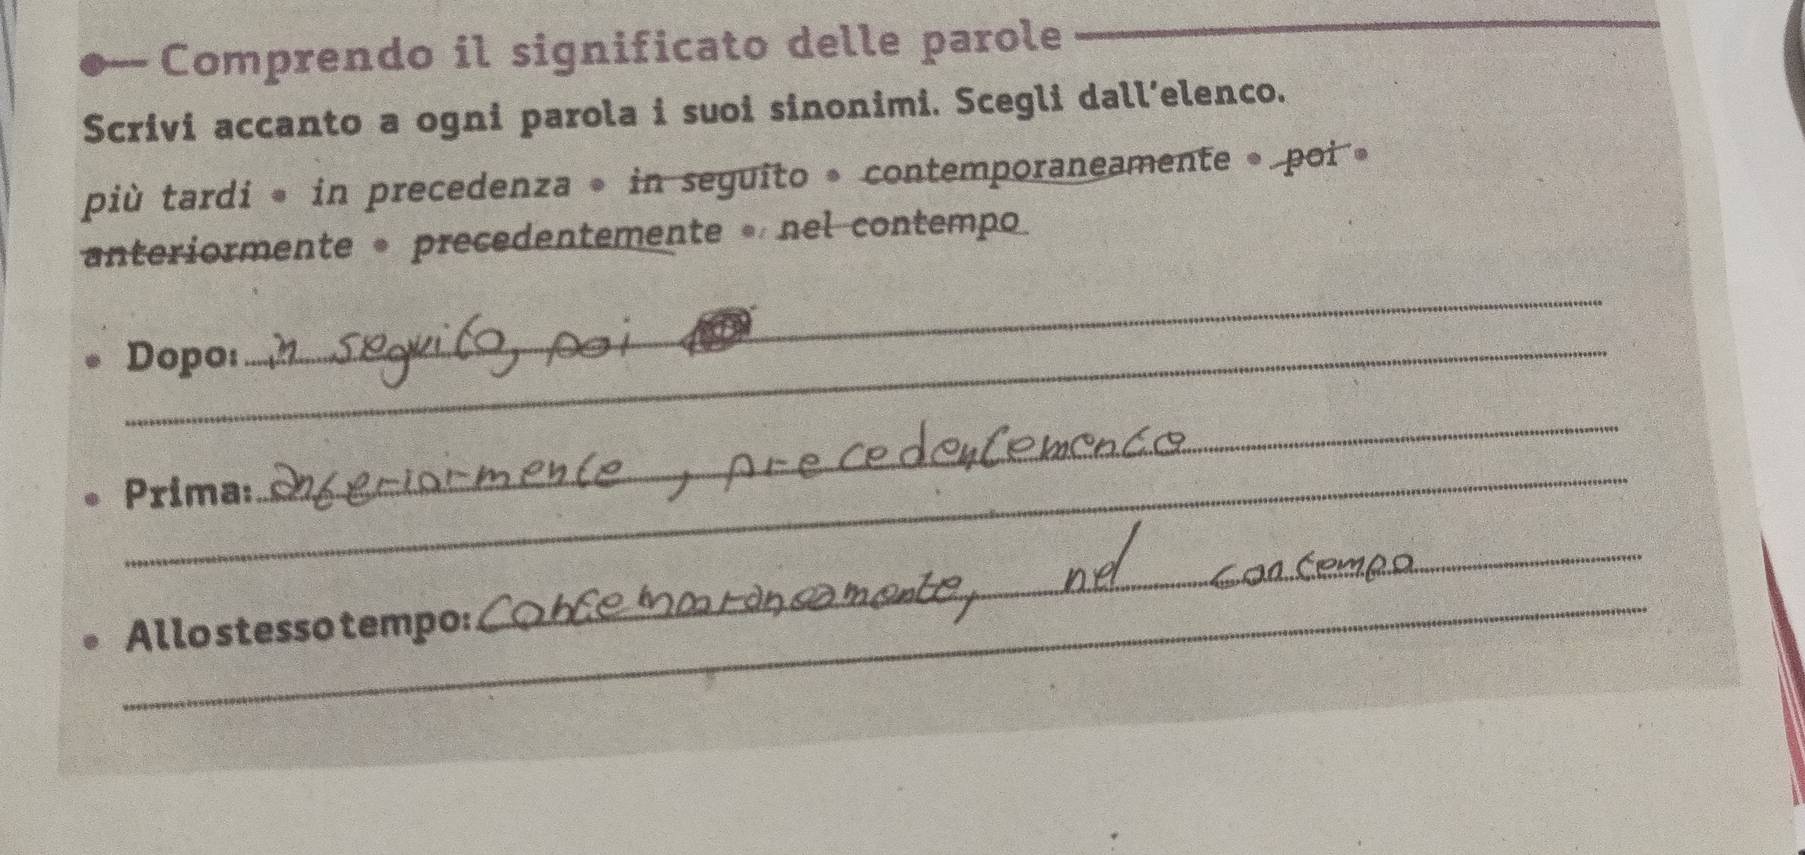 Comprendo il significato delle parole
Scrivi accanto a ogni parola i suoi sinonimi. Scegli dall'elenco.
più tardi • in precedenza • in seguito • contemporaneamente • poi •
anteriormente • precedentemente • nel contempo
• Dopo: in seguito, poi
• Prima: anteriormente, precedentemente
• Allo stesso tempo: contemporaneamente, nel contempo